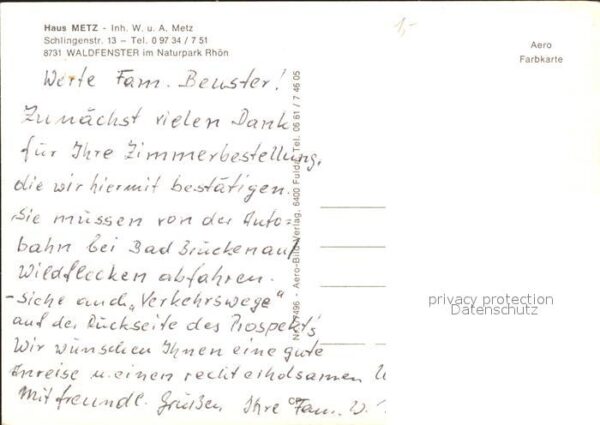 Haus METZ - Inh. W. u. A. Metz
Schlingenstr. 13 – Tel. 0 97 34 / 7 51
8731 WALDFENSTER im Naturpark Rhön
1,-
Aero
Farbkarte
Werte Fam. Beuster!
Zunächst vielen Dank
für Ihre Zimmerbestellung,
die wir hiermit bestätigen.
Sie müssen von der Auto=
bahn bei Bad Brückenau/
Wildflecken abfahren.
-Siehe auch „Verkehrswege"
auf der Rückseite des Prospekt's
Wir wünschen Ihnen eine gute
Anreise u. einen recht erholsamen U
Mit freundl. Grüßen Ihre Fam. W.
Aero-Bildverlag, 6400 Fulda, Tel. 06 61 / 7 46 05
privacy protection
Datenschutz